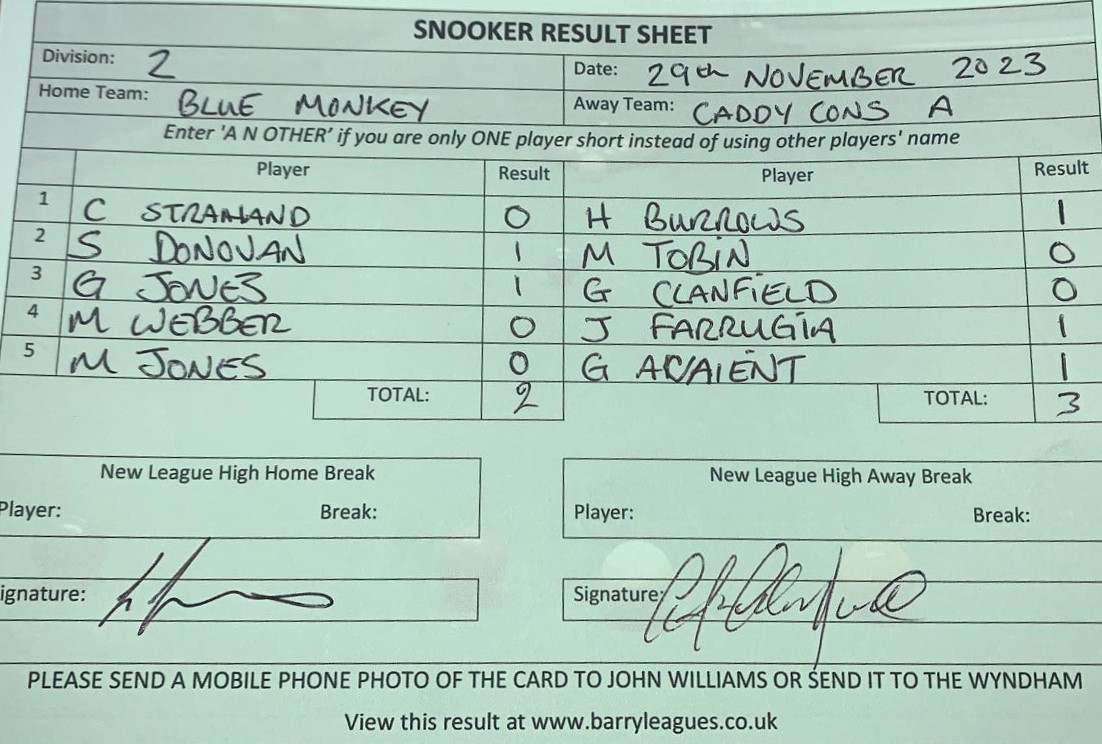 SNOOKER RESULT SHEET
Division: 2 Date: 29th NOVEMBER 2023
Home Team: BLUE MONKEY Away Team: CADDY CONS A
Enter 'A N OTHER' if you are only ONE player short instead of using other players' name
Player Result Player Result
1 C 0 H BURROWS 1
2 S DONOVAN 1 M TOBIN 0
3 G JONES 1 G CLANFIELD 0
4 M WEBBER 0 J FARRUGIA 1
5 M JONES 0 G 1
TOTAL: 2 TOTAL: 3
New League High Home Break New League High Away Break
Player: Break: Player: Break:
ignature: Signature:
PLEASE SEND A MOBILE PHONE PHOTO OF THE CARD TO JOHN WILLIAMS OR SEND IT TO THE WYNDHAM
View this result at www.barryleagues.co.uk